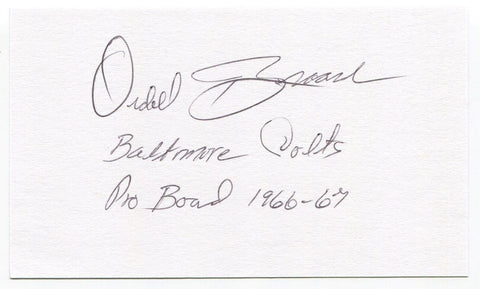 Ordell Braase
Baltimore Colts
Pro Boal 1966-67